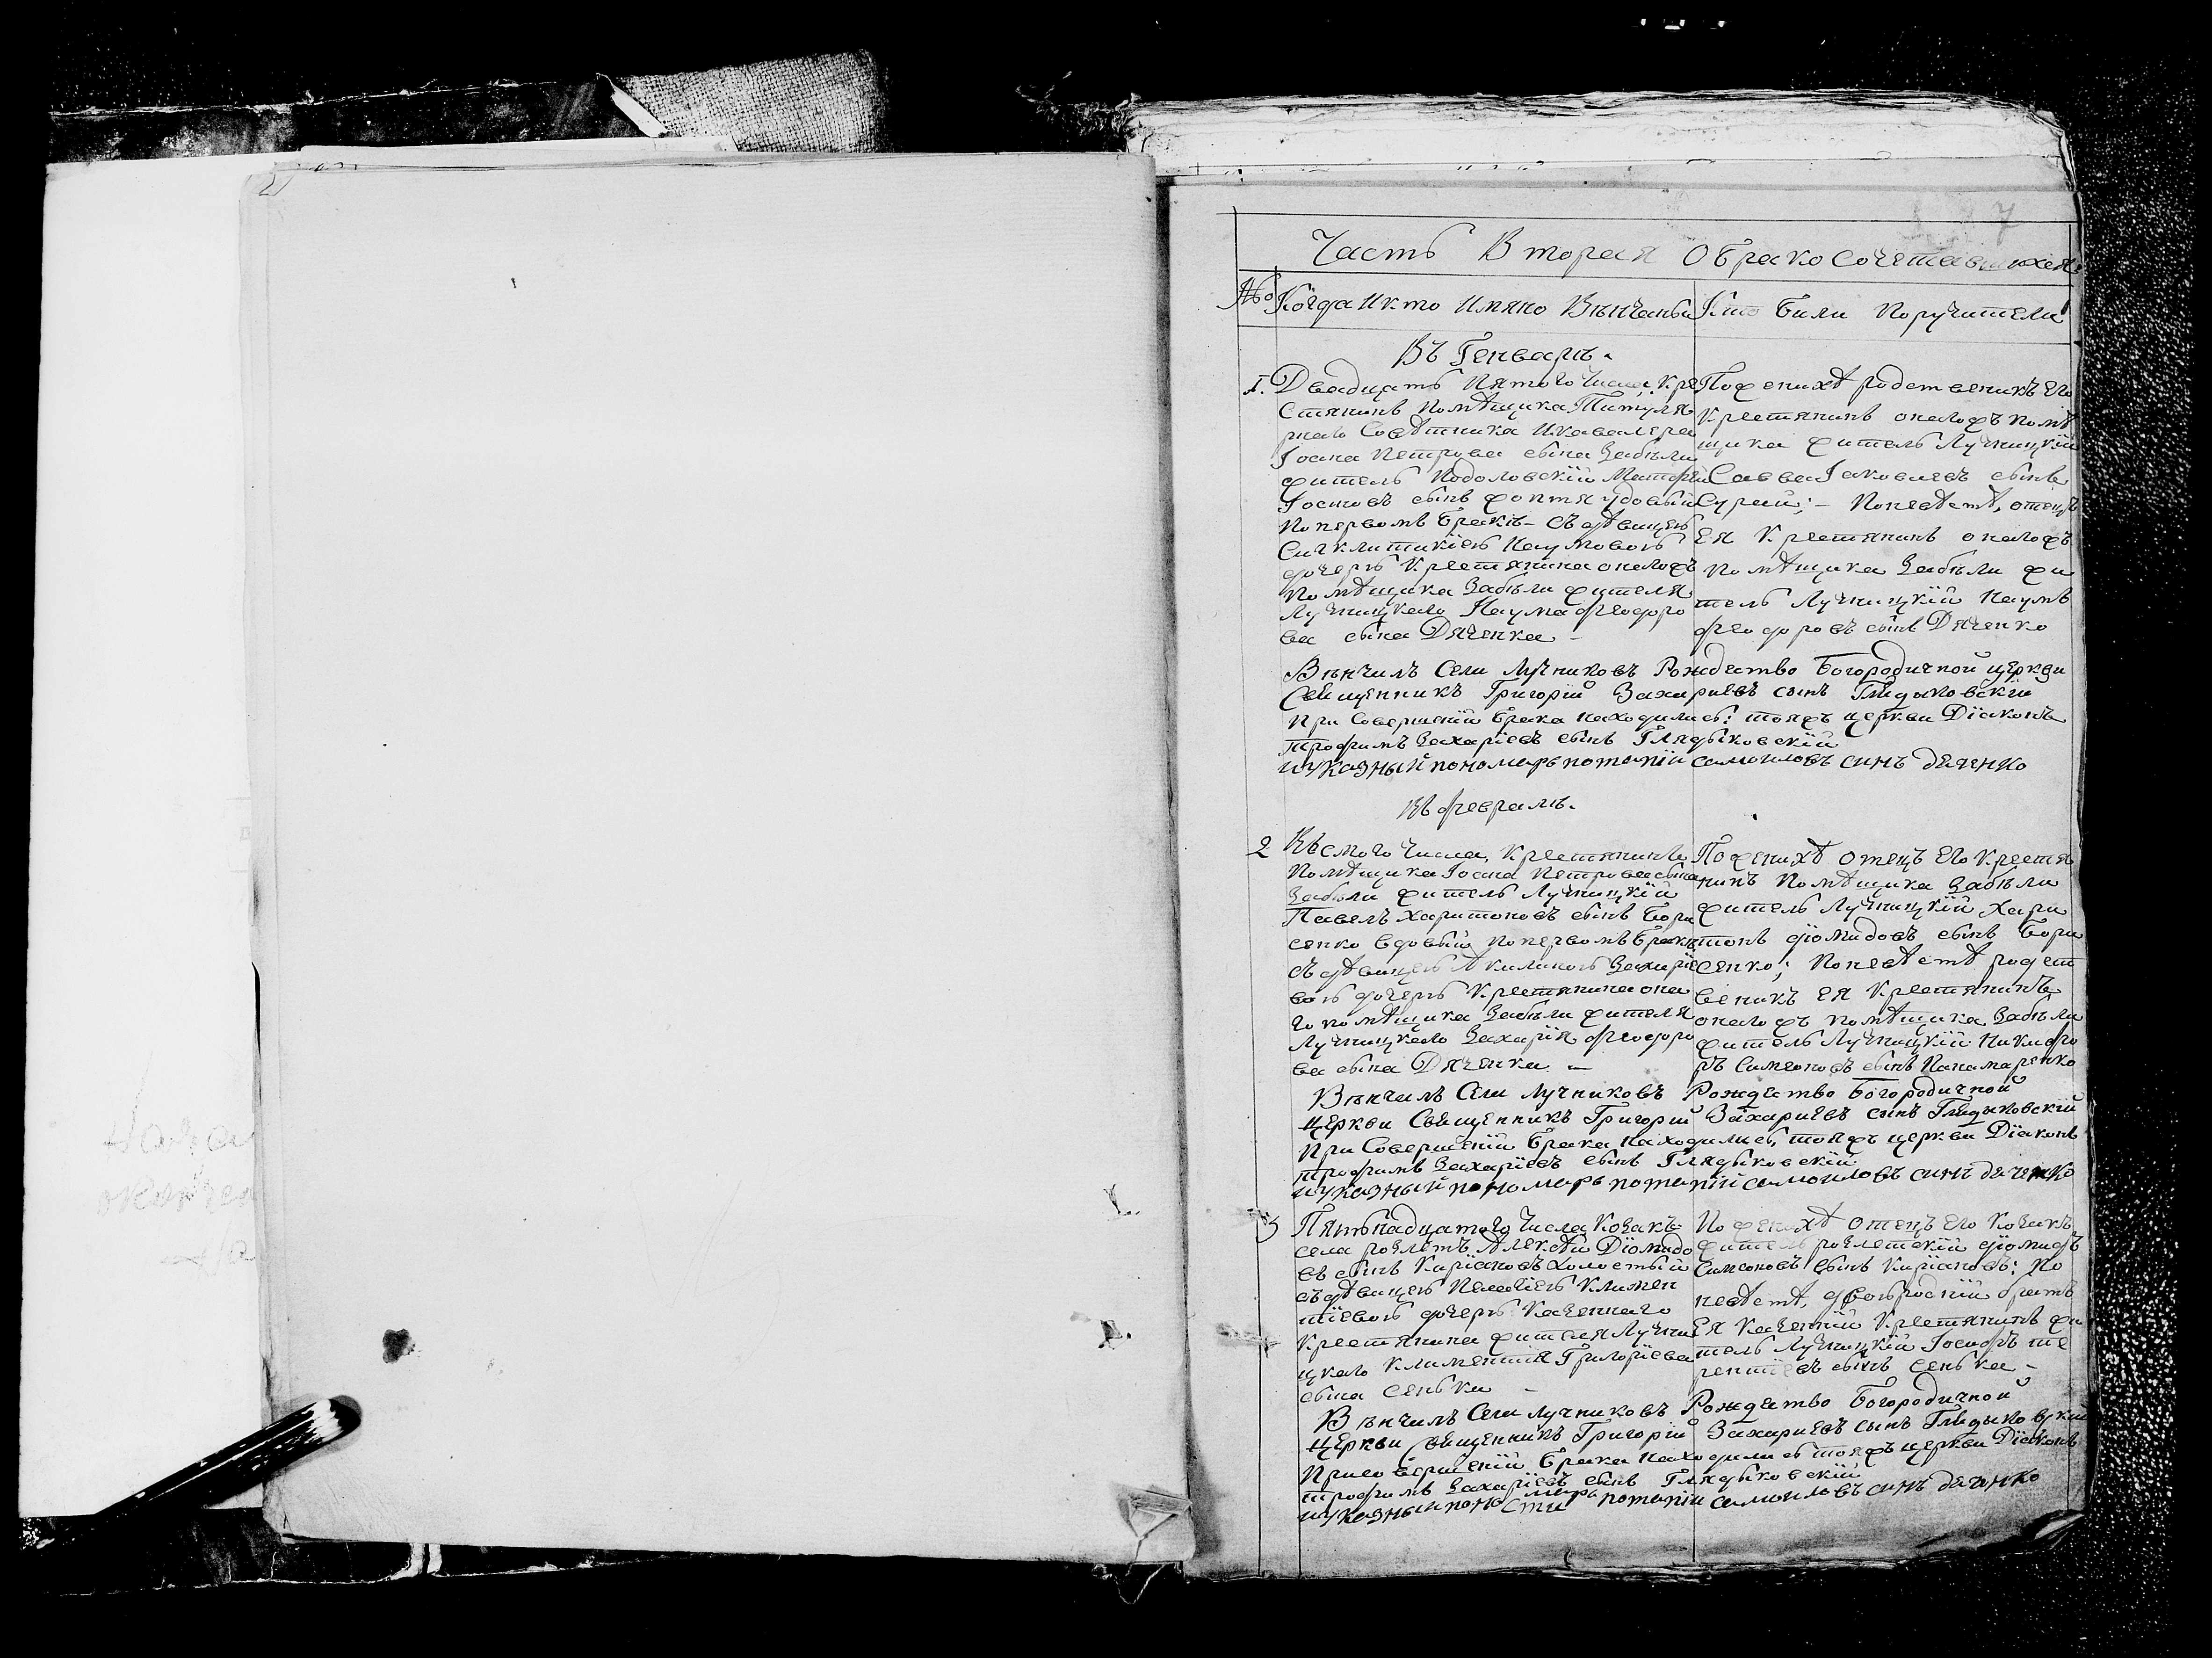 Часть Вторая О бракосочетавшихся
№ Когда и кто имяно венчаны
Кто были поручители
Въ Генварѣ.
1. Двадцать пятого числа, кре
стянинъ помѣщика Титуля
рнаго Совѣтника и кавалера
Іоана Петрова сына Забѣли
житель Подоловскій
Іосиповъ сынъ удовый
по первомъ бракѣ – съ дѣвицею
Сигклитикіею Наумовою
дочерю крестянина оногожъ
помѣщика Забѣли жителя
Лучницкаго Наума Феодоро
ва сына Дяченка –
По женихѣ родственикъ его
крестянинъ оногожъ помѣ
щика житель Лучницкій
Савва Іаковлевъ сынъ
Сурай; – по невѣстѣ, отецъ
ея крестянинъ оногожъ
помѣщика Забѣли жи
тель Лучницкій Наумъ
Феодоровъ сынъ Дяченко
Вѣнчилъ Села Лучниковъ Рождество Богородичной церкви
Священникъ Григорій Захариевъ сынъ Глядыковскій
При Совершеніи брака находились: тояжъ церкви Діаконъ
Трофимъ Захаріевъ сынъ Глядыковскій
и указный пономарь потапій самоиловъ синъ дяченко
Въ феврали.
2 Восмого числа, крестянинъ
помѣщика Іоана Петрова сына
Забѣли житель Лучницкій
Павелъ Харитоновъ сынъ Бори
сенко вдовый по первомъ бракѣ
съ дѣвицею Акилиною Захаріе
вою дочерю крестянина она
го помѣщика Забѣли жителя
Лучницкаго Захарія Феодоро
ва сына Дяченка –
По женихѣ отецъ его крестя
нинъ помѣщика Забѣли
житель Лучницкій Хари
тонъ Діомидовъ сынъ Бори
сенко; по невѣстѣ родст
веникъ ея крестянинъ
оногожъ помѣщика Забѣли
житель Лучницкій Никифо
ръ Симеоновъ сынъ Панамаренко
Вѣнчилъ Села Лучниковъ Рождество Богородичной
церкви Священникъ Григорій Захариевъ сынъ Глядыковскій
При Совершеніи брака находились, тояжъ церкви Діаконъ
трофимъ Захаріевъ сынъ Глядыковскій
и указный пономарь потапій самоиловъ синъ дяченко
3 Пятьнадцатого числа козакъ
села Розлетъ, Алексѣй Діомидо
въ сынъ Киріановъ холостый
съ дѣвицею Климен
тіевою дочерю казеннаго
крестянина жителя Лучни
цкаго Климентія Григоріева
сына Сенька –
По женихѣ отецъ его козакъ
житель розлетскій Діомидъ
Симеоновъ сынъ Киріановъ; по
невѣстѣ, двоюродній братъ
ея казенній крестянинъ жи
тель Лучницкій Іосифъ те
рентіевъ сынъ Сенька –
Вѣнчилъ Села Лучниковъ Рождество Богородичной
церкви Священникъ Григорій Захариевъ сынъ Глядыковскій
При совершеніи брака находились тояжъ церкви Діаконъ
трофимъ Захаріевъ сынъ Глядыковскій
и указный потапій самоиловъ синъ дяченко